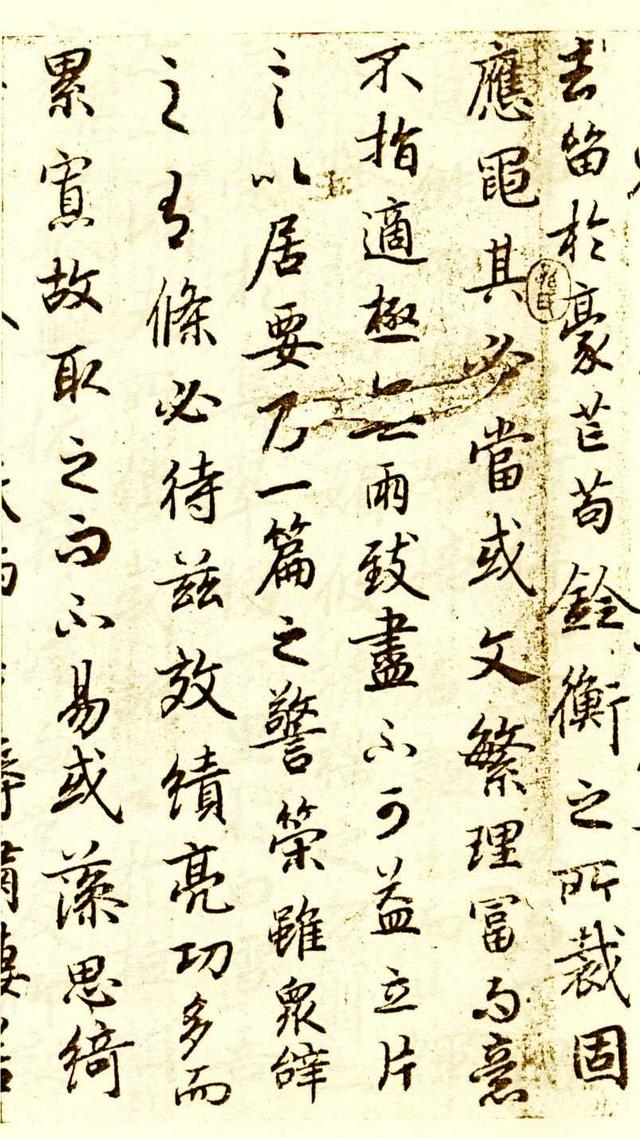 去留於豪芒苟銓衡之所裁固
應繩其必當或文繁理富而意
不指適極無兩致盡不可益立片
言以居要乃一篇之警策雖衆辭
之有條必待茲效績亮功多而
累寡故取之而不易或藻思綺